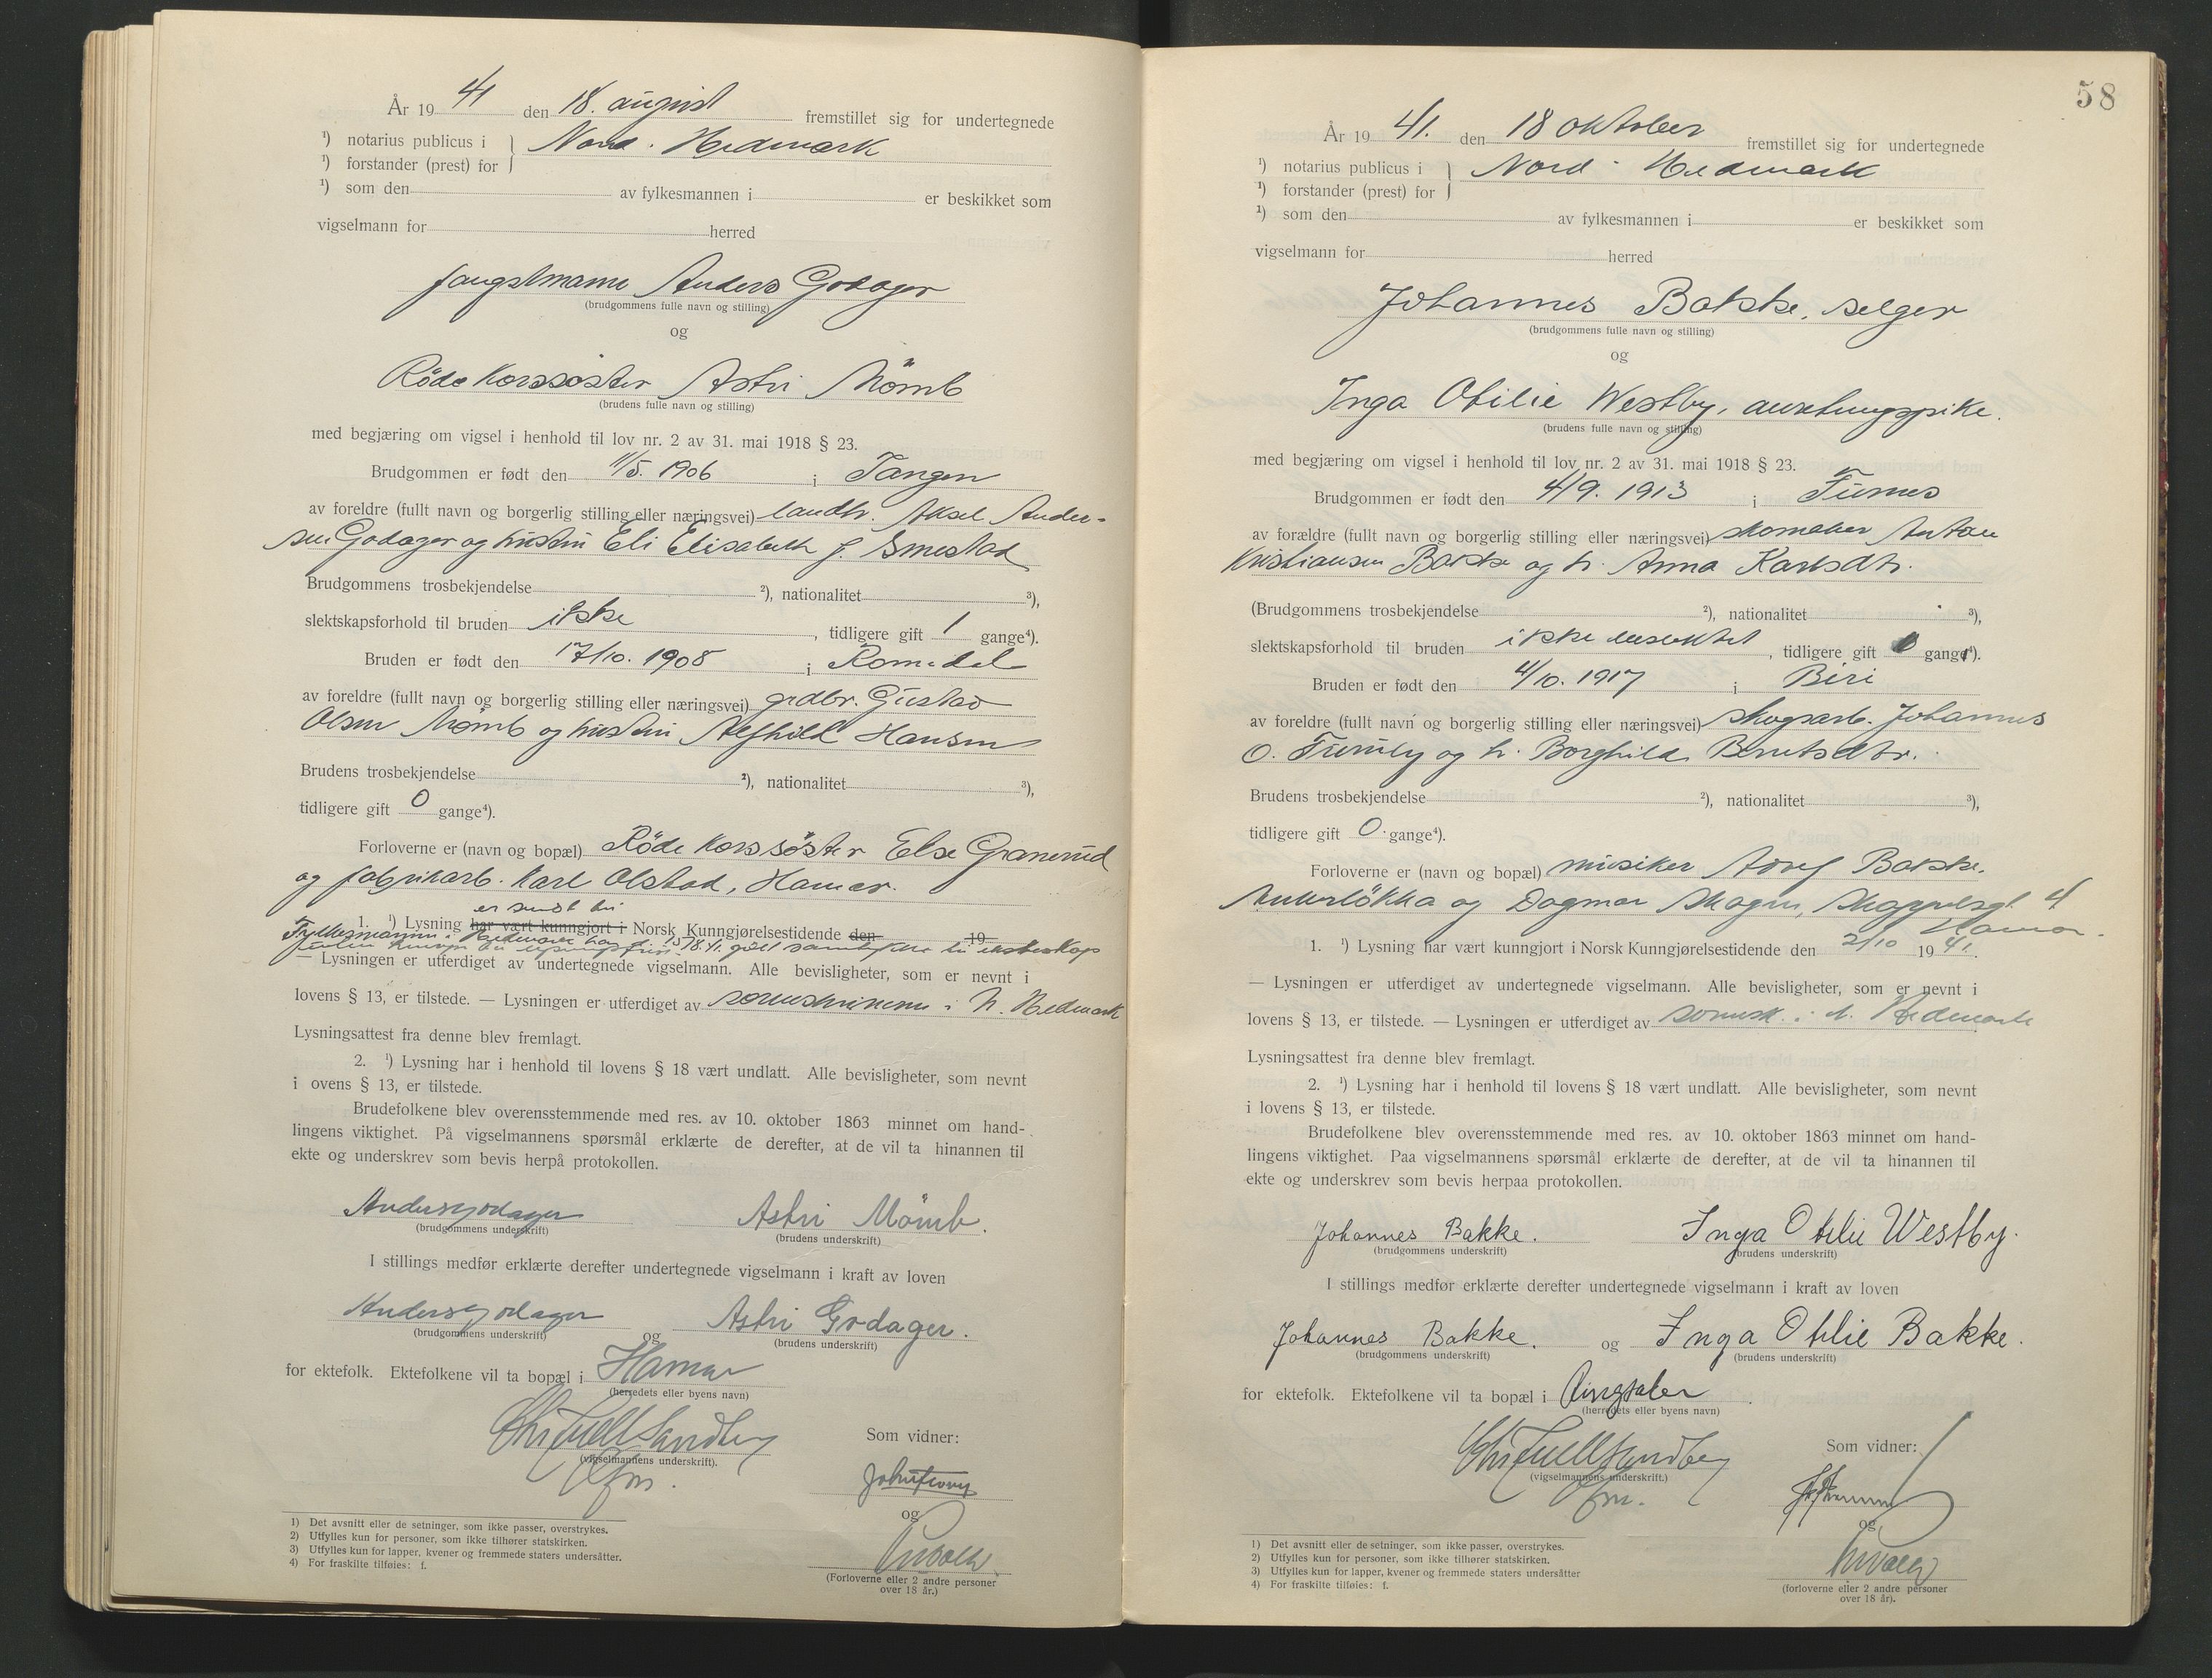 År 19 41 den 18. august fremstillet sig for undertegnede
¹) notarius publicus i } Nord-Hedmark
¹) forstander (prest) for
¹) som den av fylkesmannen i er beskikket som
vigselmann for herred
fangstmann Anders Godager
(brudgommens fulle navn og stilling)
og
Röde Korssöster Astri Mömb
(brudens fulle navn og stilling)
med begjæring om vigsel i henhold til lov nr. 2 av 31. mai 1918 § 23.
Brudgommen er født den 11/5. 1906 i Tangen
av foreldre (fullt navn og borgerlig stilling eller næringsvei) landh. Aksel Ander-
sen Godager og hustru Eli Elisabeth f. Smestad
Brudgommens trosbekjendelse ²), nationalitet ³),
slektskapsforhold til bruden ikke , tidligere gift 1 gange⁴).
Bruden er født den 17/10. 1908 i Romedal
av foreldre (fullt navn og borgerlig stilling eller næringsvei) grdbr. Gustav
Olsen Mömb og hustru Alfhild Hansen
Brudens trosbekjendelse ²), nationalitet ³),
tidligere gift 0 gange⁴).
Forloverne er (navn og bopæl) Röde Korssöster Else Granerud
og fabrikarb. Karl Olstad, Hamar.
er sendt til
1. ¹) Lysning har vært kunngjort i Norsk Kunngjørelsestidende den 19
Fylkesmannen i Hedmark har d. 15/8.41. gitt samtykke til ekteskap
— Lysningen er utferdiget av undertegnede vigselmann. Alle bevisligheter, som er nevnt i
lovens § 13, er tilstede. — Lysningen er utferdiget av sorenskriveren i N. Hedmark
Lysningsattest fra denne blev fremlagt.
2. ¹) Lysning har i henhold til lovens § 18 vært undlatt. Alle bevisligheter, som nevnt
i ovens § 13, er tilstede.
Brudefolkene blev overensstemmende med res. av 10. oktober 1863 minnet om hand-
lingens viktighet. På vigselmannens spørsmål erklærte de derefter, at de vil ta hinannen til
ekte og underskrev som bevis herpå protokollen.
Anders Godager Astri Mömb.
(brudgommens underskrift) (brudens underskrift)
I stillings medfør erklærte derefter undertegnede vigselmann i kraft av loven
Anders Godager og Astri Godager.
(brudgommens underskrift) (brudens underskrift)
for ektefolk. Ektefolkene vil ta bopæl i Hamar
(herredets eller byens navn)
Sandberg
Som vidner:
(vigselmannens underskrift).
og
(Forloverne eller 2 andre personer
over 18 år.)
1) Det avsnitt eller de setninger, som ikke passer, overstrykes.
2) Utfylles kun for personer, som ikke tilhører statskirken.
3) Utfylles kun for lapper, kvener og fremmede staters undersåtter.
4) For fraskilte tilføies: f.
58
År 19 41. den 18 oktober fremstillet sig for undertegnede
¹) notarius publicus i } Nord-Hedmark
¹) forstander (prest) for
¹) som den av fylkesmannen i er beskikket som
vigselmann for herred
Johannes Bakke, selger
(brudgommens fulle navn og stilling)
og
Inga Otilie Westby, anretningspike.
(brudens fulle navn og stilling)
med begjæring om vigsel i henhold til lov nr. 2 av 31. mai 1918 § 23.
Brudgommen er født den 4/9. 1913 i Furnes
av forældre (fullt navn og borgerlig stilling eller næringsvei) skomaker Anton
Kristiansen Bakke og h. Anna Karlsdtr.
(Brudgommens trosbekjendelse ²), nationalitet ³),
slektskapsforhold til bruden ikke beslektet , tidligere gift 0 gange⁴).
Bruden er født den 4/10. 1917 i Biri
av foreldre (fullt navn og borgerlig stilling eller næringsvei) skogsarb. Johannes
O. Furuly og h. Borghild Berntsdtr.
Brudens trosbekjendelse ²), nationalitet ³),
tidligere gift 0 gange⁴).
Forloverne er (navn og bopæl) musiker Adolf Bakke,
Ankerlökka og Dagmar Skogen, Skappelsgt. 4
Hamar.
1. ¹) Lysning har vært kunngjort i Norsk Kunngjørelsestidende den 2/10 19 41.
— Lysningen er utferdiget av undertegnede vigselmann. Alle bevisligheter, som er nevnt i
lovens § 13, er tilstede. — Lysningen er utferdiget av sorensk. i N. Hedmark
Lysningsattest fra denne blev fremlagt.
2. ¹) Lysning har i henhold til lovens § 18 vært undlatt. Alle bevisligheter, som nevnt
i lovens § 13, er tilstede.
Brudefolkene blev overensstemmende med res. av 10. oktober 1863 minnet om hand-
lingens viktighet. Paa vigselmannens spørsmål erklærte de derefter, at de vil ta hinannen til
ekte og underskrev som bevis herpaa protokollen.
Johannes Bakke. Inga Otilie Westby.
(brudgommens underskrift) (brudens underskrift)
I stillings medfør erklærte derefter undertegnede vigselmann i kraft av loven
Johannes Bakke. og Inga Otilie Bakke.
(brudgommens underskrift) (brudens underskrift)
for ektefolk. Ektefolkene vil ta bopæl i Ringsaker
(herredets eller byens navn)
Sandberg
Som vidner:
(vigselmannens underskrift.)
og
(forloverne eller 2 andre personer
over 18 år).
1) Det avsnitt eller de setninger, som ikke passer, overstrykes.
2) Utfylles kun for personer, som ikke tilhører statskirken.
3) Utfylles kun for lapper, kvener og fremmede staters undersåtter
4) For fraskilte tilføies: f.